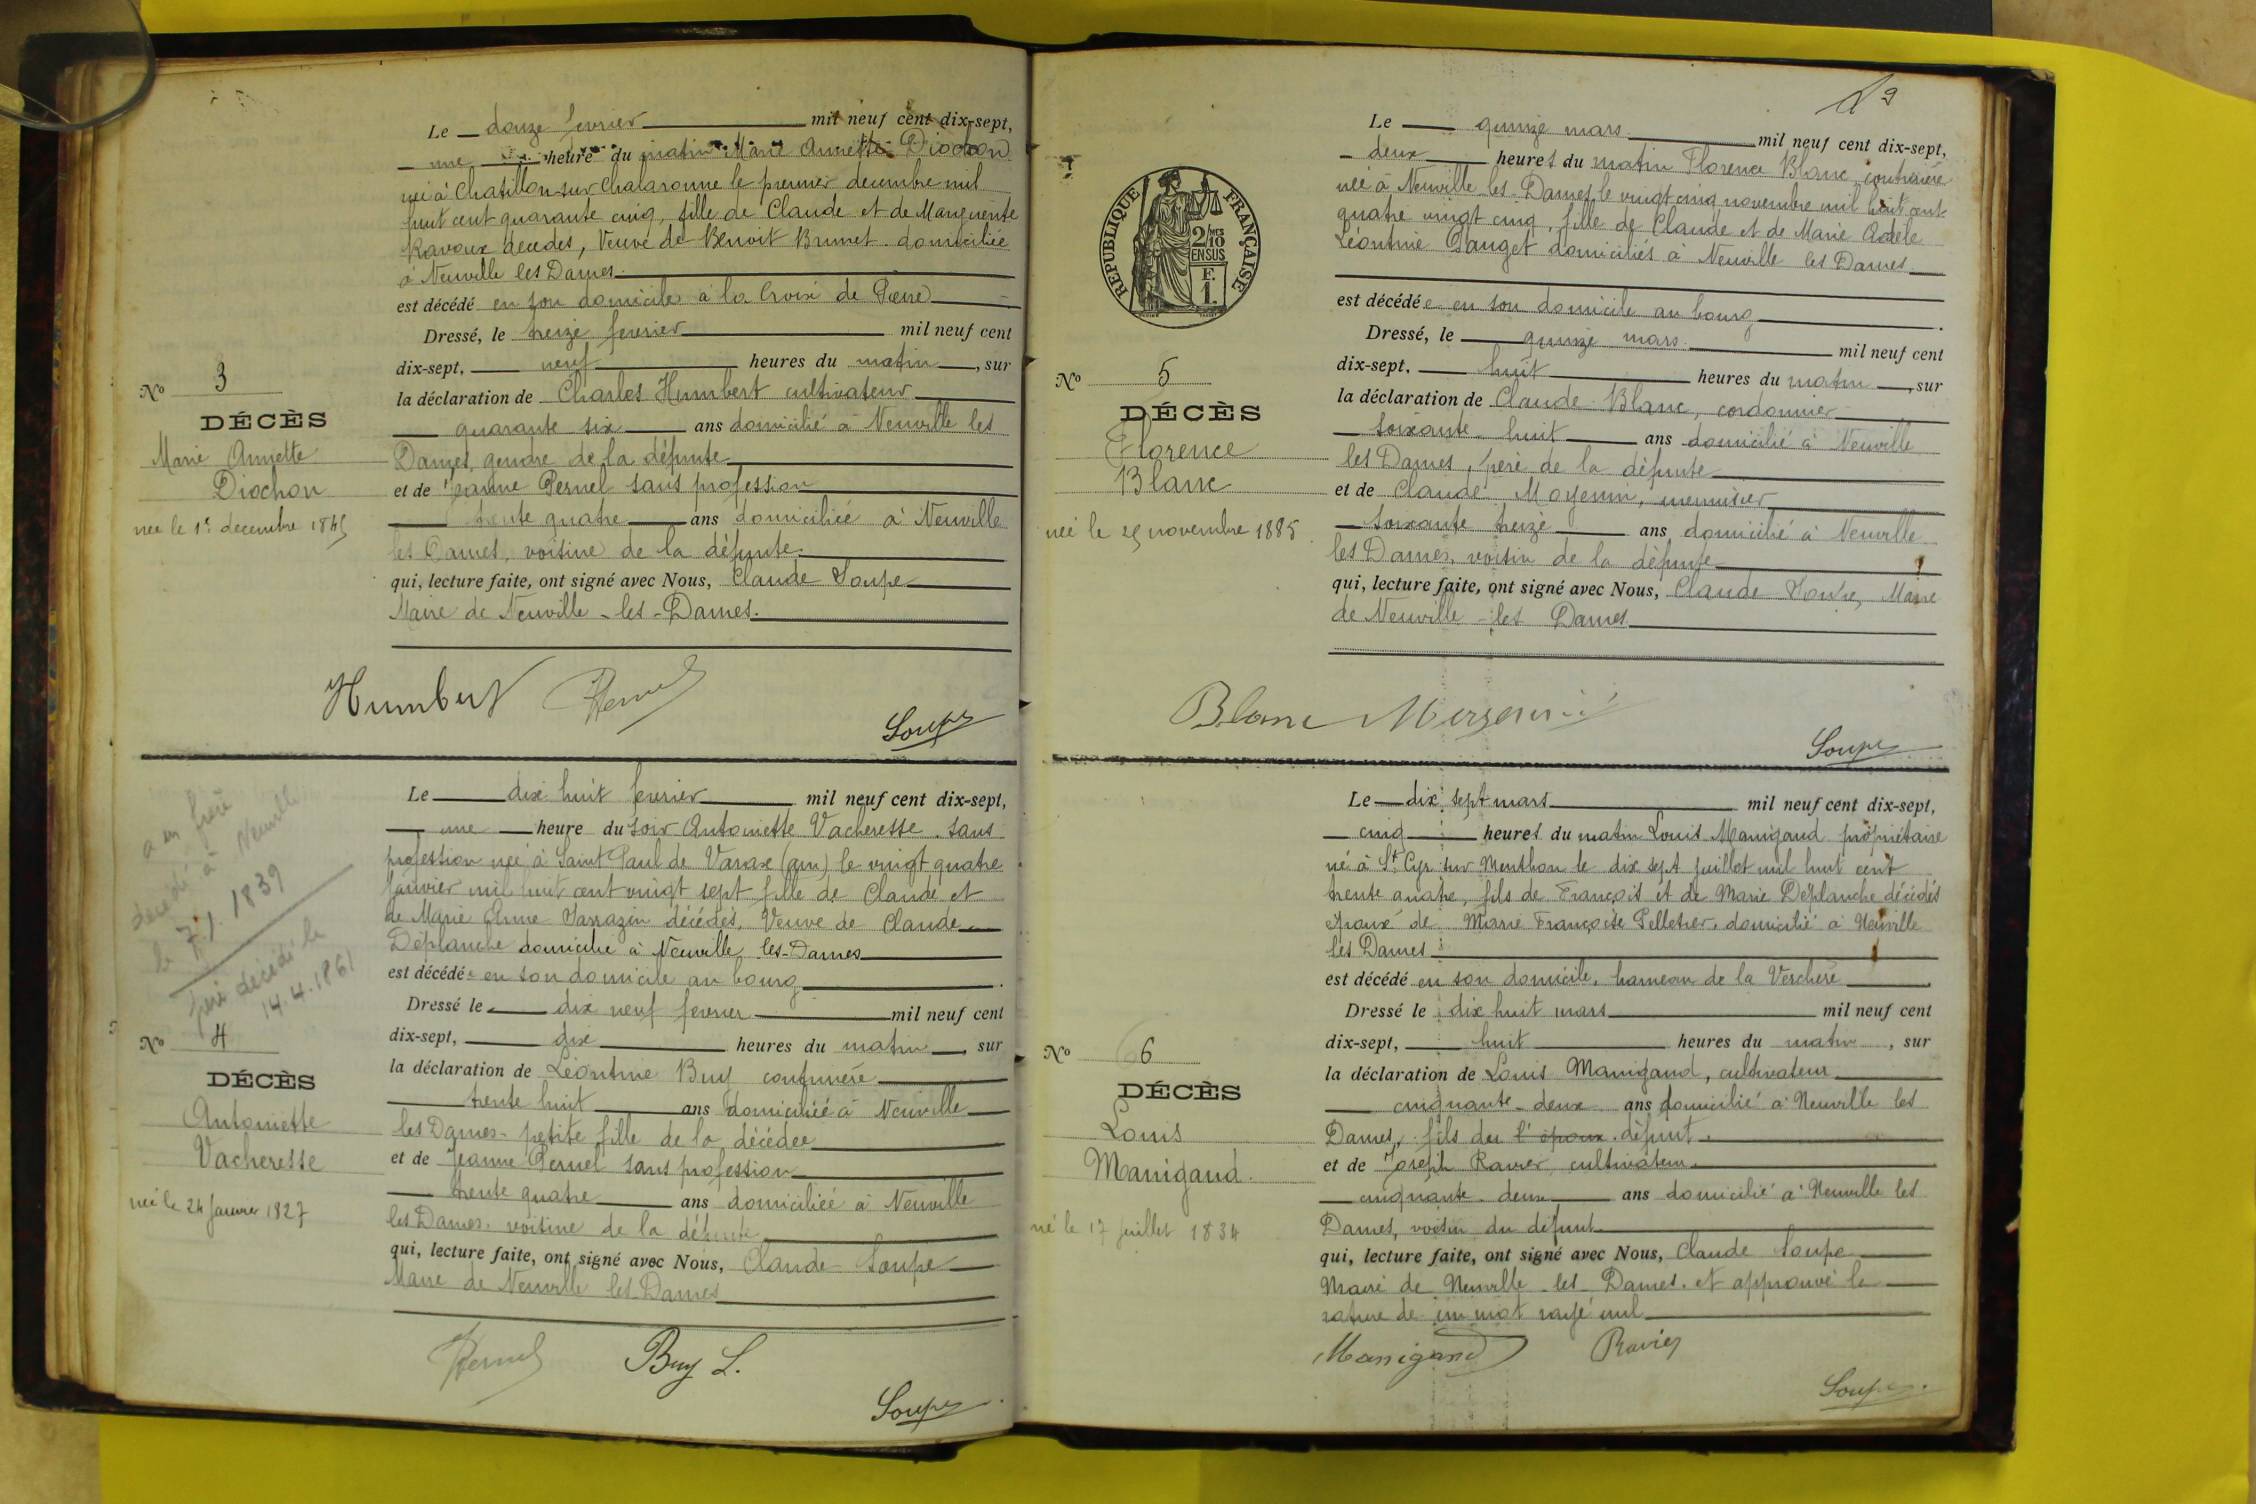 Le douze fevrier mil neuf cent dix-sept,
une heure du matin Marie Annette Diochon
née à Chatillon-sur Chalaronne le premier decembre mil
huit cent quarante cinq, fille de Claude et de Marguerite
Ravoux decedes, Veuve de Benoit Brunet domiciliée
à Neuville les Dames
est décédé en son domicile à la Croix de Pierre
Dressé, le treize fevrier mil neuf cent
dix-sept, neuf heures du matin, sur
la déclaration de Charles Humbert cultivateur
quarante six ans domicilié à Neuville les
Dames, gendre de la défunte
et de Jeanne Pernel sans profession
trente quatre ans domiciliée à Neuville
les Dames, voisine de la défunte
qui, lecture faite, ont signé avec Nous, Claude Soupe
Maire de Neuville-les-Dames.
No 3
DÉCÈS
Marie Annette
Diochon
née le 1er decembre 1845
Humbert Pernel
Soupe
Le dix huit fevrier mil neuf cent dix-sept,
une heure du soir Antoinette Vacheresse sans
profession née à Saint Paul de Varax (ain) le vingt quatre
janvier mil huit cent vingt sept fille de Claude et
de Marie Anne Sarrazin décédés, Veuve de Claude
Déplanche domicilie à Neuville les-Dames
est décédée en son domicile au bourg
Dressé le dix neuf fevrier mil neuf cent
dix-sept, dix heures du matin, sur
la déclaration de Léontine Buy couturière
trente huit ans domiciliée à Neuville
les Dames - petite fille de la décédée
et de Jeanne Pernel sans profession
trente quatre ans domiciliée à Neuville
les Dames. voisine de la défunte
qui, lecture faite, ont signé avec Nous, Claude Soupe
Maire de Neuville les Dames
a un frère
décédé à Neuville
le 7.1.1839
père décédé le
14.4.1861
No 4
DÉCÈS
Antoinette
Vacheresse
née le 24 janvier 1827
Pernel Buy L.
Soupe
Le quinze mars mil neuf cent dix-sept,
deux heures du matin Florence Blanc couturière
née à Neuville les-Dames le vingt cinq novembre mil huit cent
quatre vingt cinq, fille de Claude et de Marie Adele
Léontine Danget domiciliés à Neuville les Dames
est décédée en son domicile au bourg
Dressé, le quinze mars mil neuf cent
dix-sept, huit heures du matin, sur
la déclaration de Claude Blanc, cordonnier
soixante huit ans domicilié à Neuville
les Dames, père de la défunte
et de Claude, menuisier
soixante treize ans domicilié à Neuville
les Dames, voisin de la défunte
qui, lecture faite, ont signé avec Nous, Claude Soupe, Maire
de Neuville-les Dames
RÉPUBLIQUE FRANÇAISE
2/10 MES
EN SUS
F.
1.
No 5
DÉCÈS
Florence
Blanc
née le 25 novembre 1885
Blanc
Soupe
Le dix sept mars mil neuf cent dix-sept,
cinq heures du matin Louis Manigand propriétaire
né à St Cyr sur Menthon le dix sept juillet mil huit cent
trente quatre, fils de François et de Marie Déplanche décédés
époux de Marie Françoise Pelletier, domicilié à Neuville
les Dames
est décédé en son domicile, hameau de la Verchère
Dressé le dix huit mars mil neuf cent
dix-sept, huit heures du matin, sur
la déclaration de Louis Manigand, cultivateur
cinquante-deux ans domicilié à Neuville les
Dames, fils du l'époux défunt
et de Joseph Ravier cultivateur
cinquante-deux ans domicilié à Neuville les
Dames, voisin du défunt
qui, lecture faite, ont signé avec Nous, Claude Soupe
Maire de Neuville-les-Dames. et approuvé la
rature de un mot rayé nul
No 6
DÉCÈS
Louis
Manigand.
né le 17 juillet 1834
Manigand Ravier
Soupe